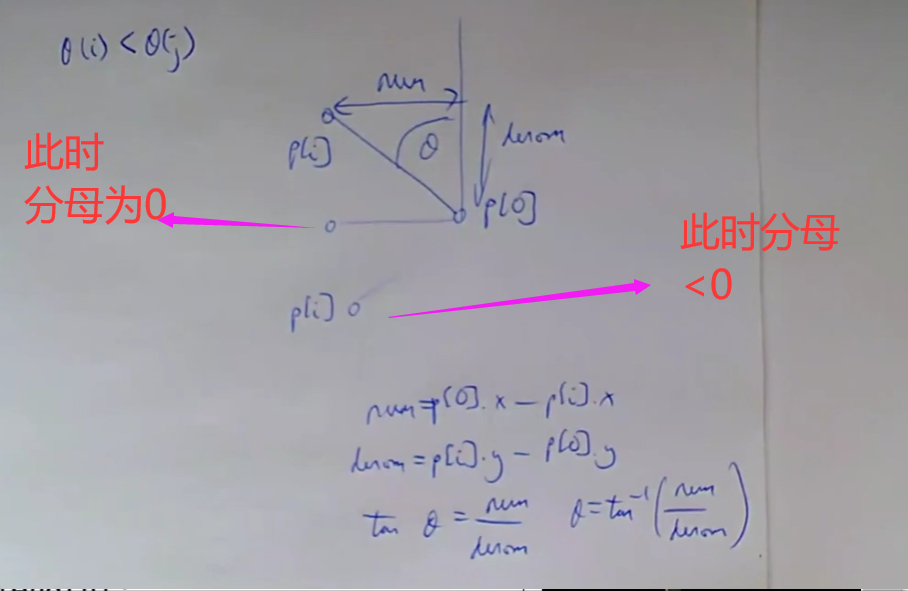 θ(i) < θ(j)
num
此时
分母为0
p[i]
θ
denom
p[0]
此时分母
<0
p[i]
num=p[0].x - p[i].x
denom = p[i].y - p[0].y
tan θ = num/denom θ = tan⁻¹(num/denom)